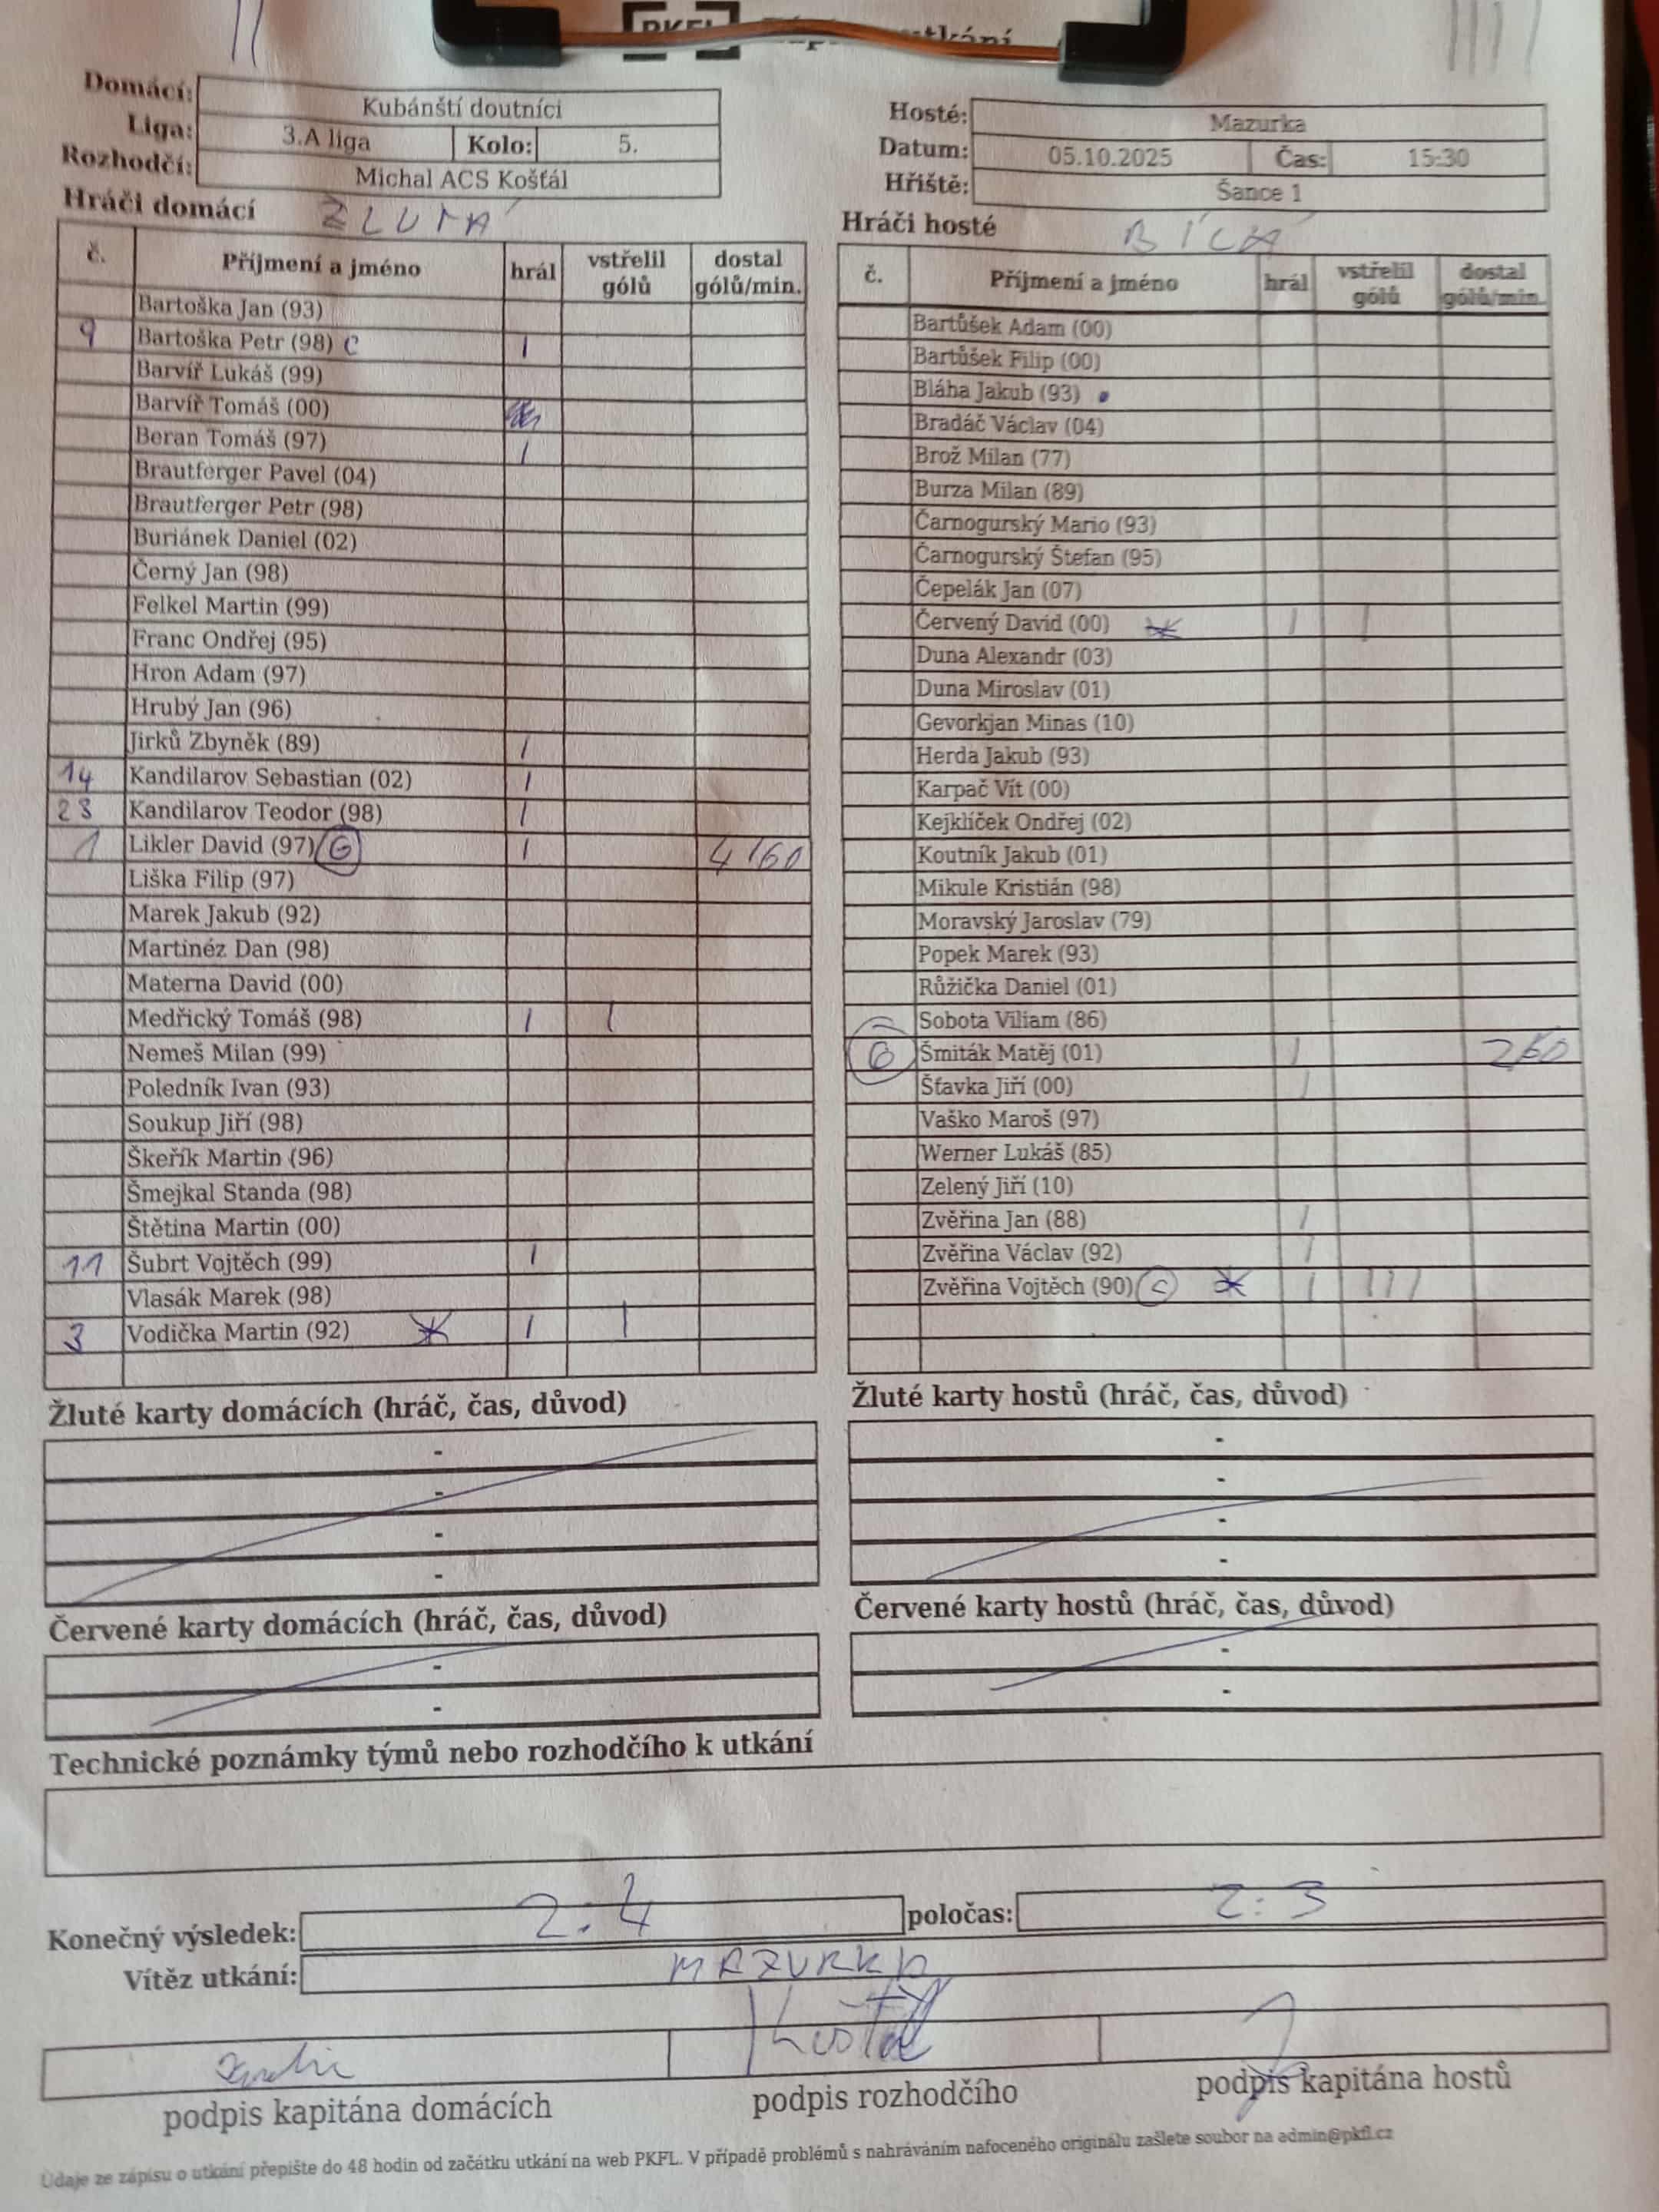 PKFL
Domácí: Kubánští doutníci
Liga: 3.A liga Kolo: 5.
Rozhodčí: Michal ACS Košťál
Hosté: Mazurka
Datum: 05.10.2025 Čas: 15:30
Hřiště: Šance 1
Hráči domácí ŽLUTÁ
č. Příjmení a jméno hrál vstřelil gólů dostal gólů/min.
Bartoška Jan (93)
9 Bartoška Petr (98) C I
Barvíř Lukáš (99)
Barvíř Tomáš (00)
Beran Tomáš (97) I
Brautferger Pavel (04)
Brautferger Petr (98)
Buriánek Daniel (02)
Černý Jan (98)
Felkel Martin (99)
Franc Ondřej (95)
Hron Adam (97)
Hrubý Jan (96)
Jirků Zbyněk (89) I
14 Kandilarov Sebastian (02) I
23 Kandilarov Teodor (98) I
1 Likler David (97) G I 4/60
Liška Filip (97)
Marek Jakub (92)
Martinéz Dan (98)
Materna David (00)
Medřický Tomáš (98) I I
Nemeš Milan (99)
Poledník Ivan (93)
Soukup Jiří (98)
Škeřík Martin (96)
Šmejkal Standa (98)
Štětina Martin (00)
11 Šubrt Vojtěch (99) I
Vlasák Marek (98)
3 Vodička Martin (92) * I I
Hráči hosté BÍLÁ
č. Příjmení a jméno hrál vstřelil gólů dostal gólů/min.
Bartůšek Adam (00)
Bartůšek Filip (00)
Bláha Jakub (93)
Bradáč Václav (04)
Brož Milan (77)
Burza Milan (89)
Čarnogurský Mario (93)
Čarnogurský Štefan (95)
Čepelák Jan (07)
Červený David (00) * I I
Duna Alexandr (03)
Duna Miroslav (01)
Gevorkjan Minas (10)
Herda Jakub (93)
Karpač Vít (00)
Kejklíček Ondřej (02)
Koutník Jakub (01)
Mikule Kristián (98)
Moravský Jaroslav (79)
Popek Marek (93)
Růžička Daniel (01)
Sobota Viliam (86)
G Šmiták Matěj (01) I 2/60
Šťavka Jiří (00) I
Vaško Maroš (97)
Werner Lukáš (85)
Zelený Jiří (10)
Zvěřina Jan (88) I
Zvěřina Václav (92) I
Zvěřina Vojtěch (90) C * I III
Žluté karty domácích (hráč, čas, důvod)
-
-
-
-
Žluté karty hostů (hráč, čas, důvod)
-
-
-
-
Červené karty domácích (hráč, čas, důvod)
-
-
Červené karty hostů (hráč, čas, důvod)
-
-
Technické poznámky týmů nebo rozhodčího k utkání
Konečný výsledek: 2:4 poločas: 2:3
Vítěz utkání: MAZURKA
podpis kapitána domácích
Košťál
podpis rozhodčího
podpis kapitána hostů
Údaje ze zápisu o utkání přepište do 48 hodin od začátku utkání na web PKFL. V případě problémů s nahráváním nafoceného originálu zašlete soubor na admin@pkfl.cz